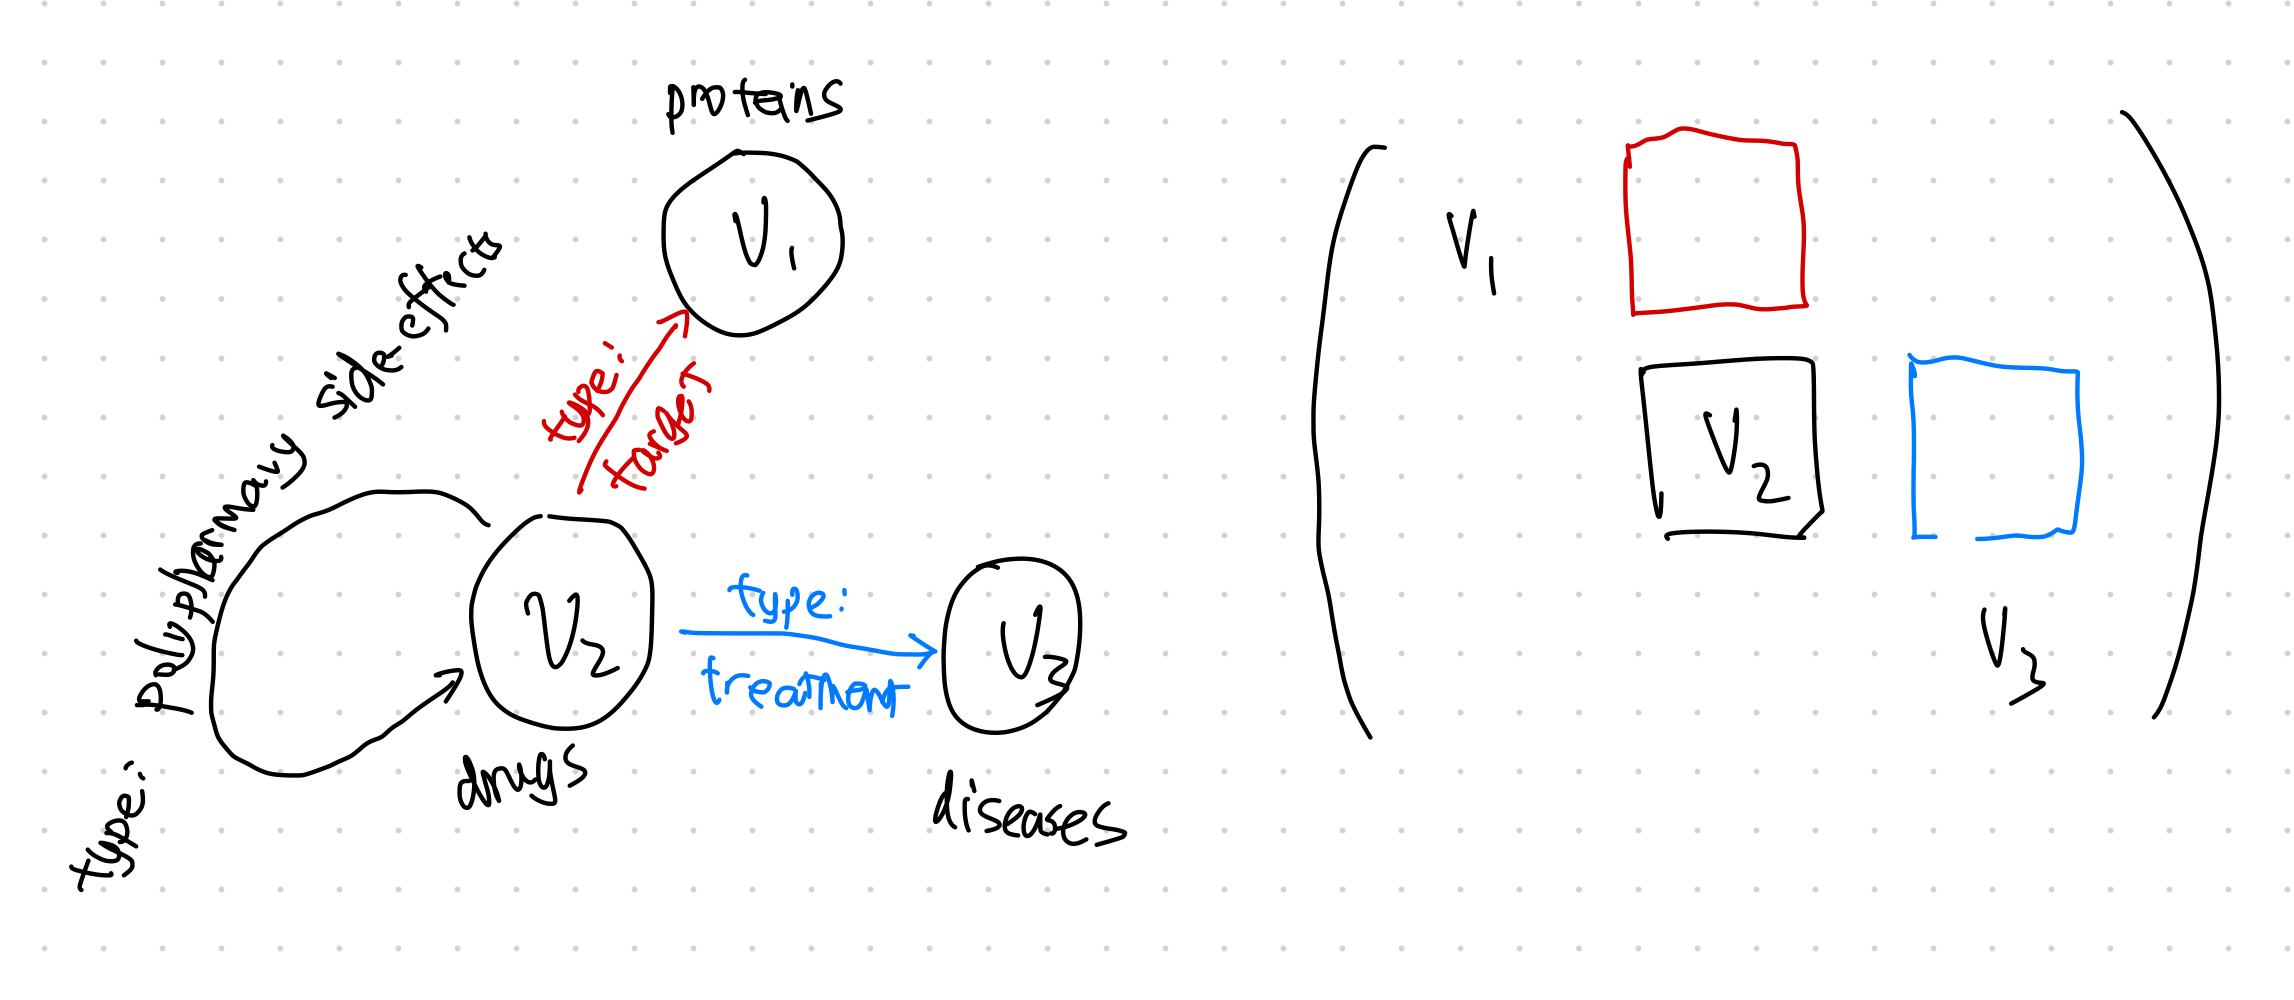 proteins
V1
type:
target
type: polypharmavy side-effects
V2
drugs
type:
treatment
V3
diseases
V1
V2
V3